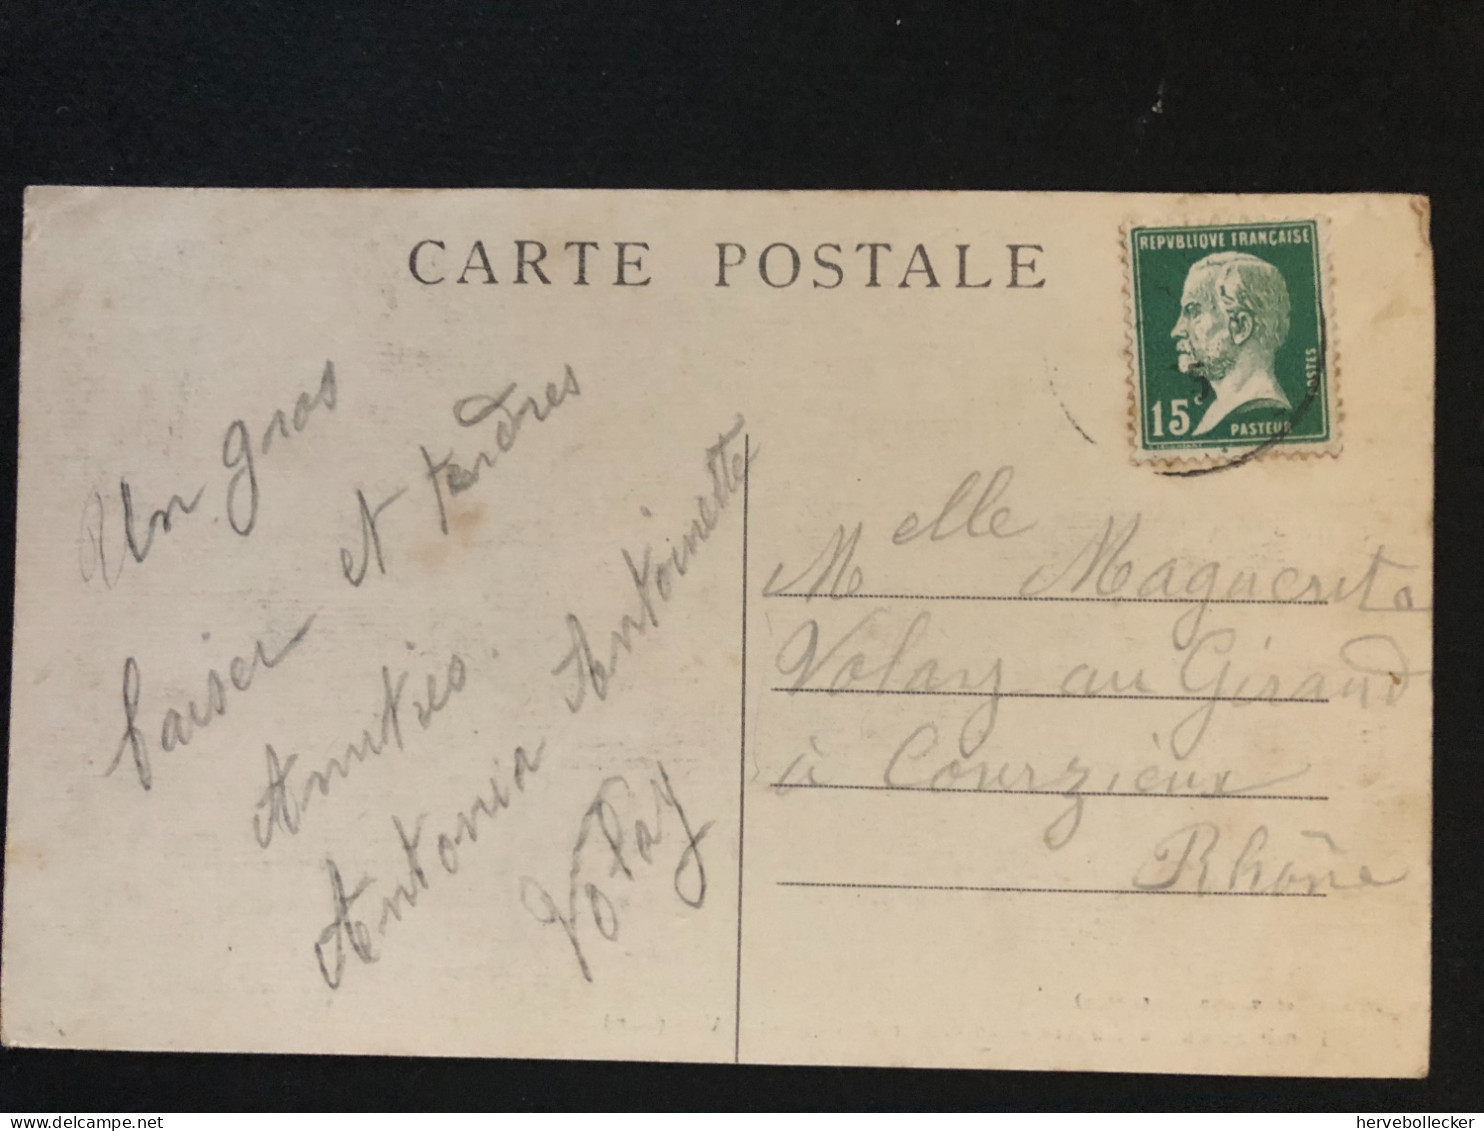 CARTE POSTALE
REPVBLIQVE FRANÇAISE
POSTES
15
PASTEUR
Un gros
baiser et tendres
Amitiés.
Antonia Antoinette
Volay
Melle Maguerite
Volay au Giraud
à Courzieux
Rhône
hervebollecker